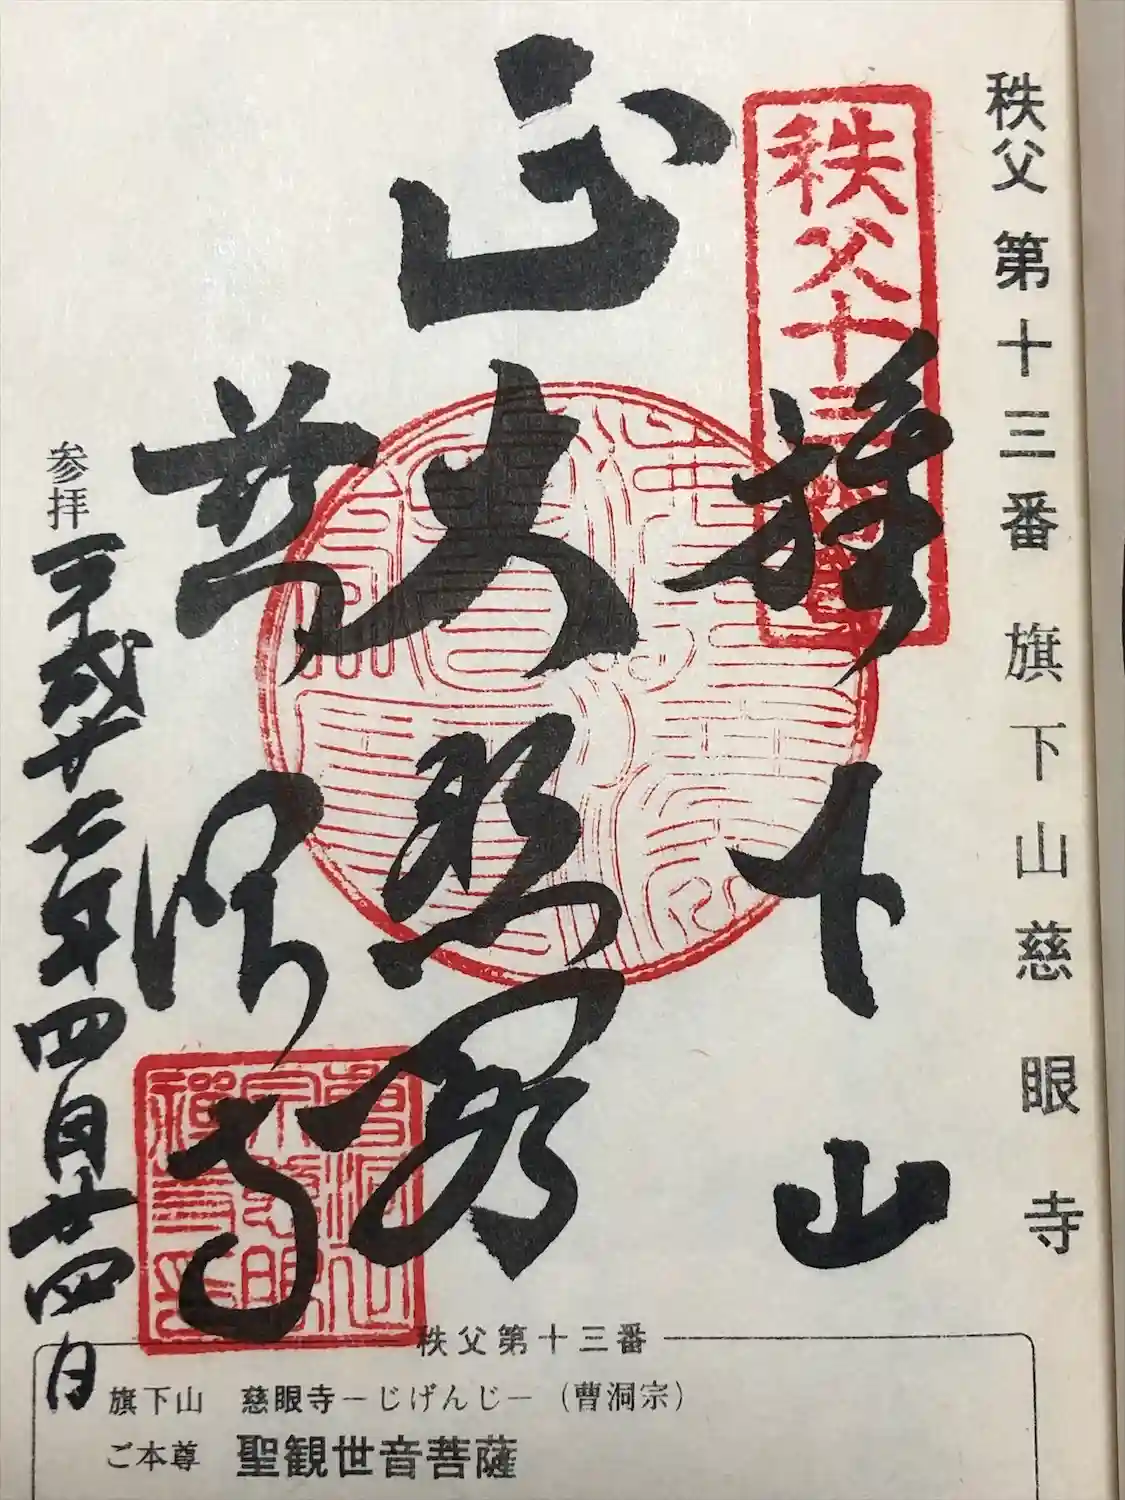 秩父第十三番 旗下山慈眼寺
秩父十三番
旗下山
正
大悲殿
慈眼寺
参拝
平成廿七年四月廿四日
秩父第十三番
旗下山 慈眼寺－じげんじ－（曹洞宗）
ご本尊 聖観世音菩薩